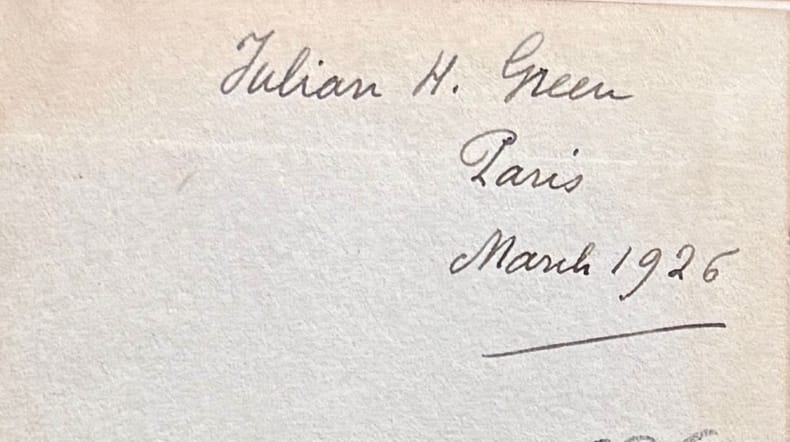 Julian H. Green
Paris
March 1926